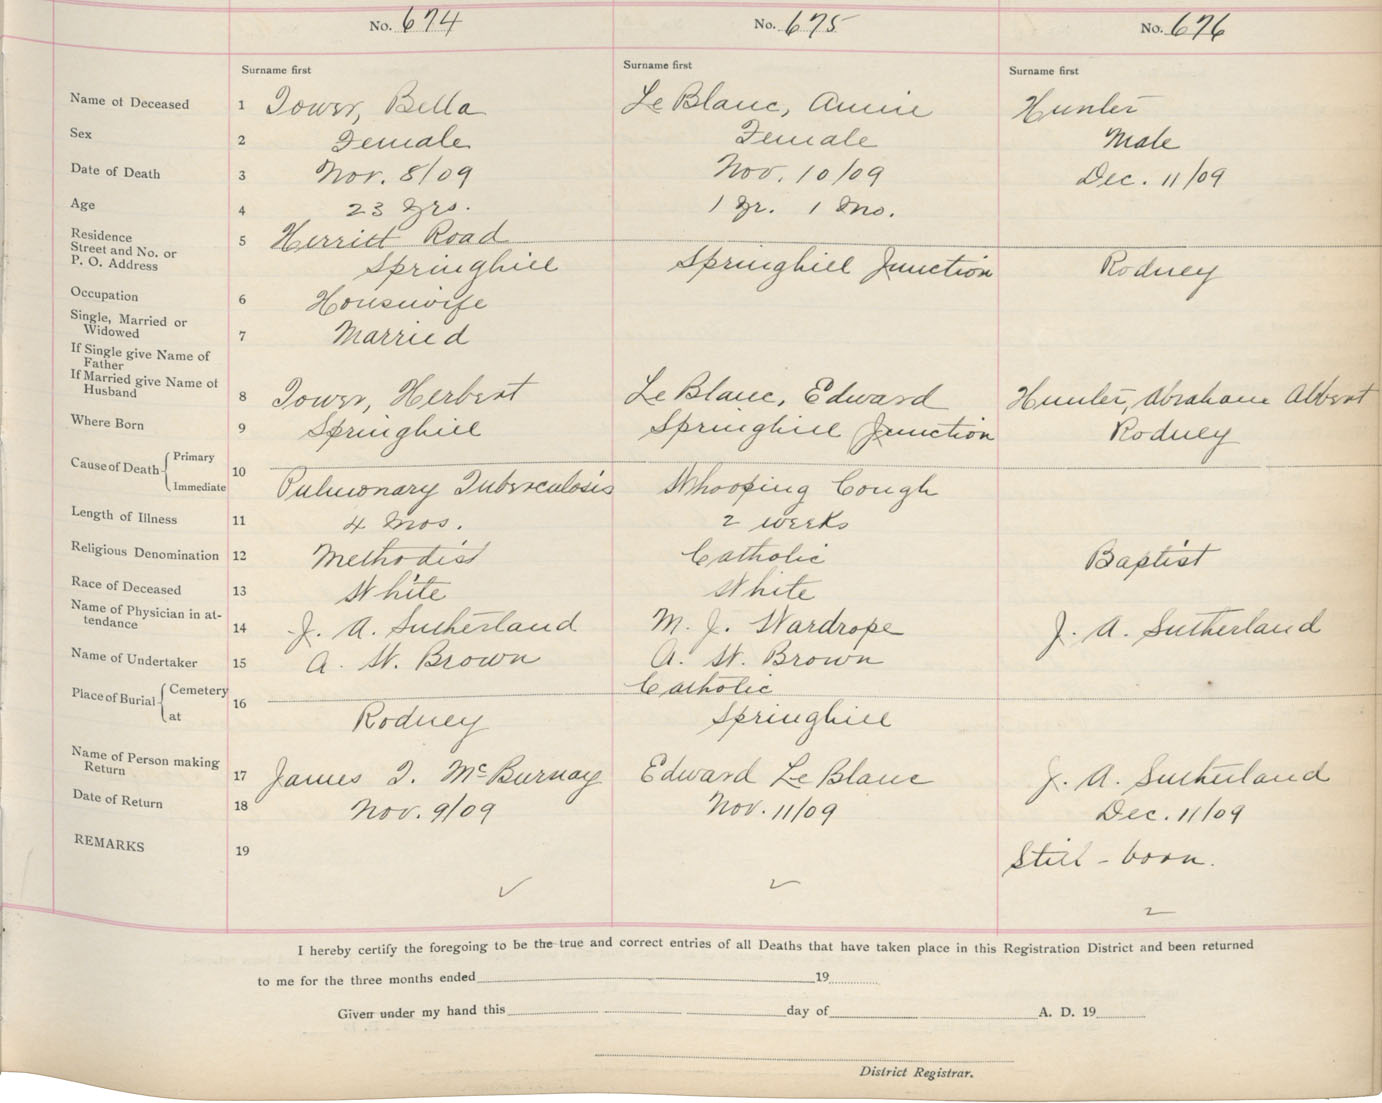 No. 674 No. 675 No. 676
Surname first Surname first Surname first
Name of Deceased 1 Tower, Bella LeBlanc, Annie Hunter
Sex 2 Female Female Male
Date of Death 3 Nov. 8/09 Nov. 10/09 Dec. 11/09
Age 4 23 yrs. 1 yr. 1 mo.
Residence 5 Herritt Road
Street and No. or
P. O. Address Springhill Springhill Junction Rodney
Occupation 6 Housewife
Single, Married or
Widowed 7 Married
If Single give Name of
Father
If Married give Name of
Husband 8 Tower, Herbert LeBlanc, Edward Hunter, Abraham Albert
Where Born 9 Springhill Springhill Junction Rodney
Cause of Death { Primary
Immediate 10 Pulmonary Tuberculosis Whooping Cough
Length of Illness 11 4 mos. 2 weeks
Religious Denomination 12 Methodist Catholic Baptist
Race of Deceased 13 White White
Name of Physician in at-
tendance 14 J. A. Sutherland M. J. Wardrope J. A. Sutherland
Name of Undertaker 15 A. W. Brown A. W. Brown
Place of Burial { Cemetery 16 Catholic
at Rodney Springhill
Name of Person making
Return 17 James T. McBurnay Edward LeBlanc J. A. Sutherland
Date of Return 18 Nov. 9/09 Nov. 11/09 Dec. 11/09
REMARKS 19 Still-born.
I hereby certify the foregoing to be the true and correct entries of all Deaths that have taken place in this Registration District and been returned
to me for the three months ended 19
Given under my hand this day of A. D. 19
District Registrar.